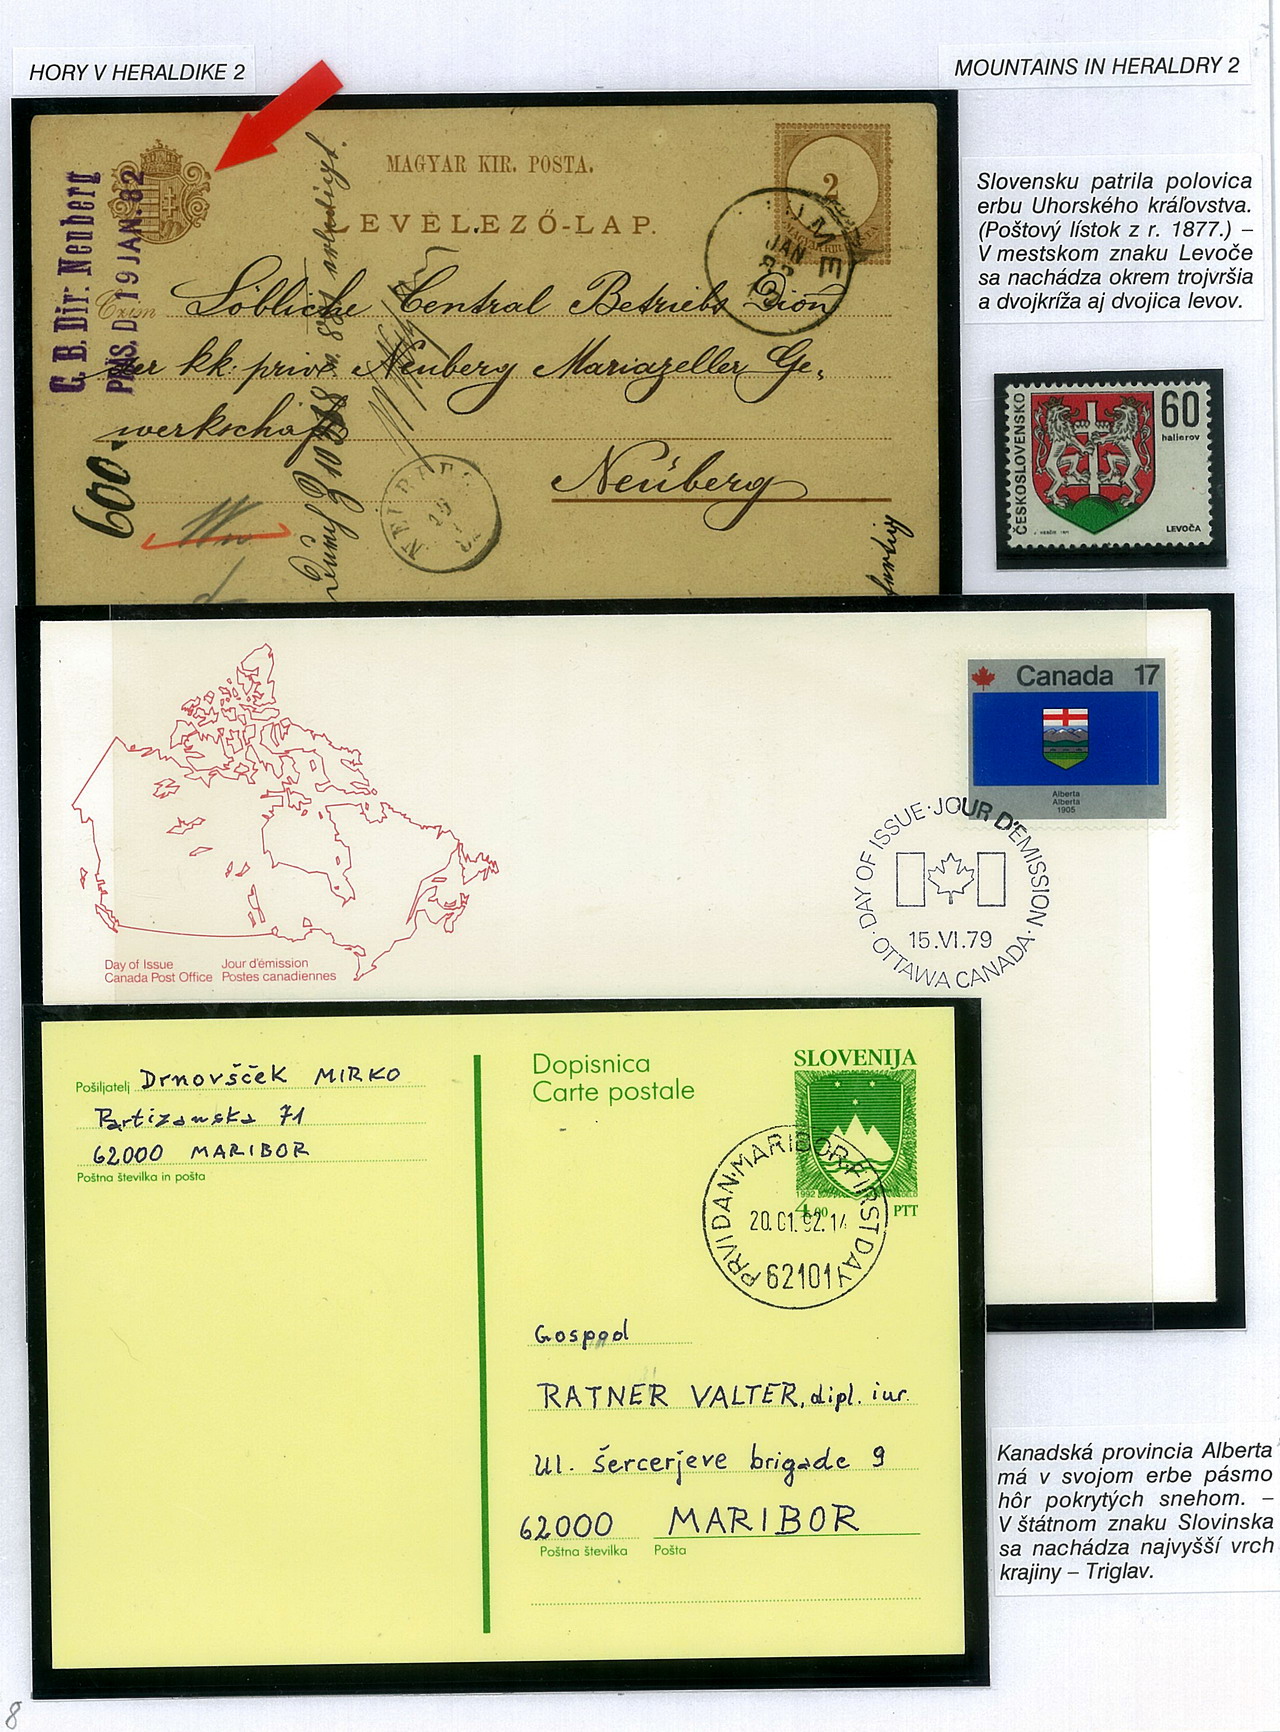 HORY V HERALDIKE 2
MOUNTAINS IN HERALDRY 2
C. B. Dir. Neuberg
PRÄS. D. 19 JAN. 82
MAGYAR KIR. POSTA.
LEVELEZŐ-LAP.
2
JAN
82
Czim Löbliche Central Betriebs Dion
der kk: priv. Neuberg Mariazeller Ge,
werkschaft
Neuberg
600
Slovensku patrila polovica
erbu Uhorského kráľovstva.
(Poštový lístok z r. 1877.) –
V mestskom znaku Levoče
sa nachádza okrem trojvršia
a dvojkríža aj dvojica levov.
ČESKOSLOVENSKO
60
halierov
LEVOČA
Canada 17
Alberta
Alberta
1905
DAY OF ISSUE · JOUR D'ÉMISSION
15.VI.79
OTTAWA CANADA
Day of Issue Jour d'émission
Canada Post Office Postes canadiennes
Pošiljatelj Drnovšček MIRKO
Partizanska 71
62000 MARIBOR
Poštna številka in pošta
Dopisnica
Carte postale
SLOVENIJA
1992
4,00 PTT
PRVI DAN·MARIBOR·FIRST DAY
20.01.92.14
62101
Gospod
RATNER VALTER, dipl. iur.
Ul. Šercerjeve brigade 9
62000 MARIBOR
Poštna številka Pošta
Kanadská provincia Alberta
má v svojom erbe pásmo
hôr pokrytých snehom. –
V štátnom znaku Slovinska
sa nachádza najvyšší vrch
krajiny – Triglav.
8